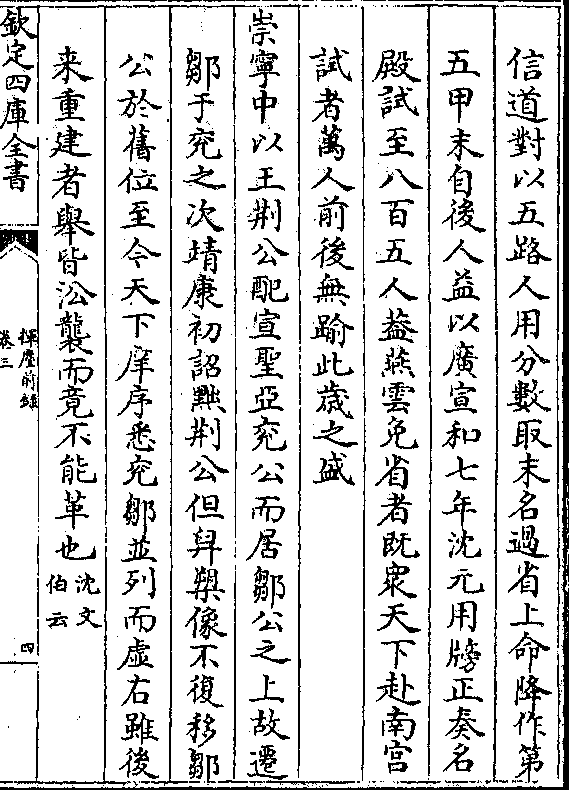 信道對以五路人用分數取末名過省上命降作第
五甲末自後人益以廣宣和七年沈元用牓正奏名
殿試至八百五人葢燕雲免省者既衆天下赴南宮
試者萬人前後無踰此歳之盛
崇寧中以王荆公配宣聖亞兖公而居鄒公之上故遷
鄒于兖之次靖康初詔黜荆公但舁塑像不復移鄒
公於舊位至今天下庠序悉兖鄒並列而虚右雖後
来重建者舉皆沿襲而竟不能革也沈文
伯云
欽定四庫全書
揮麈前録
卷三
四